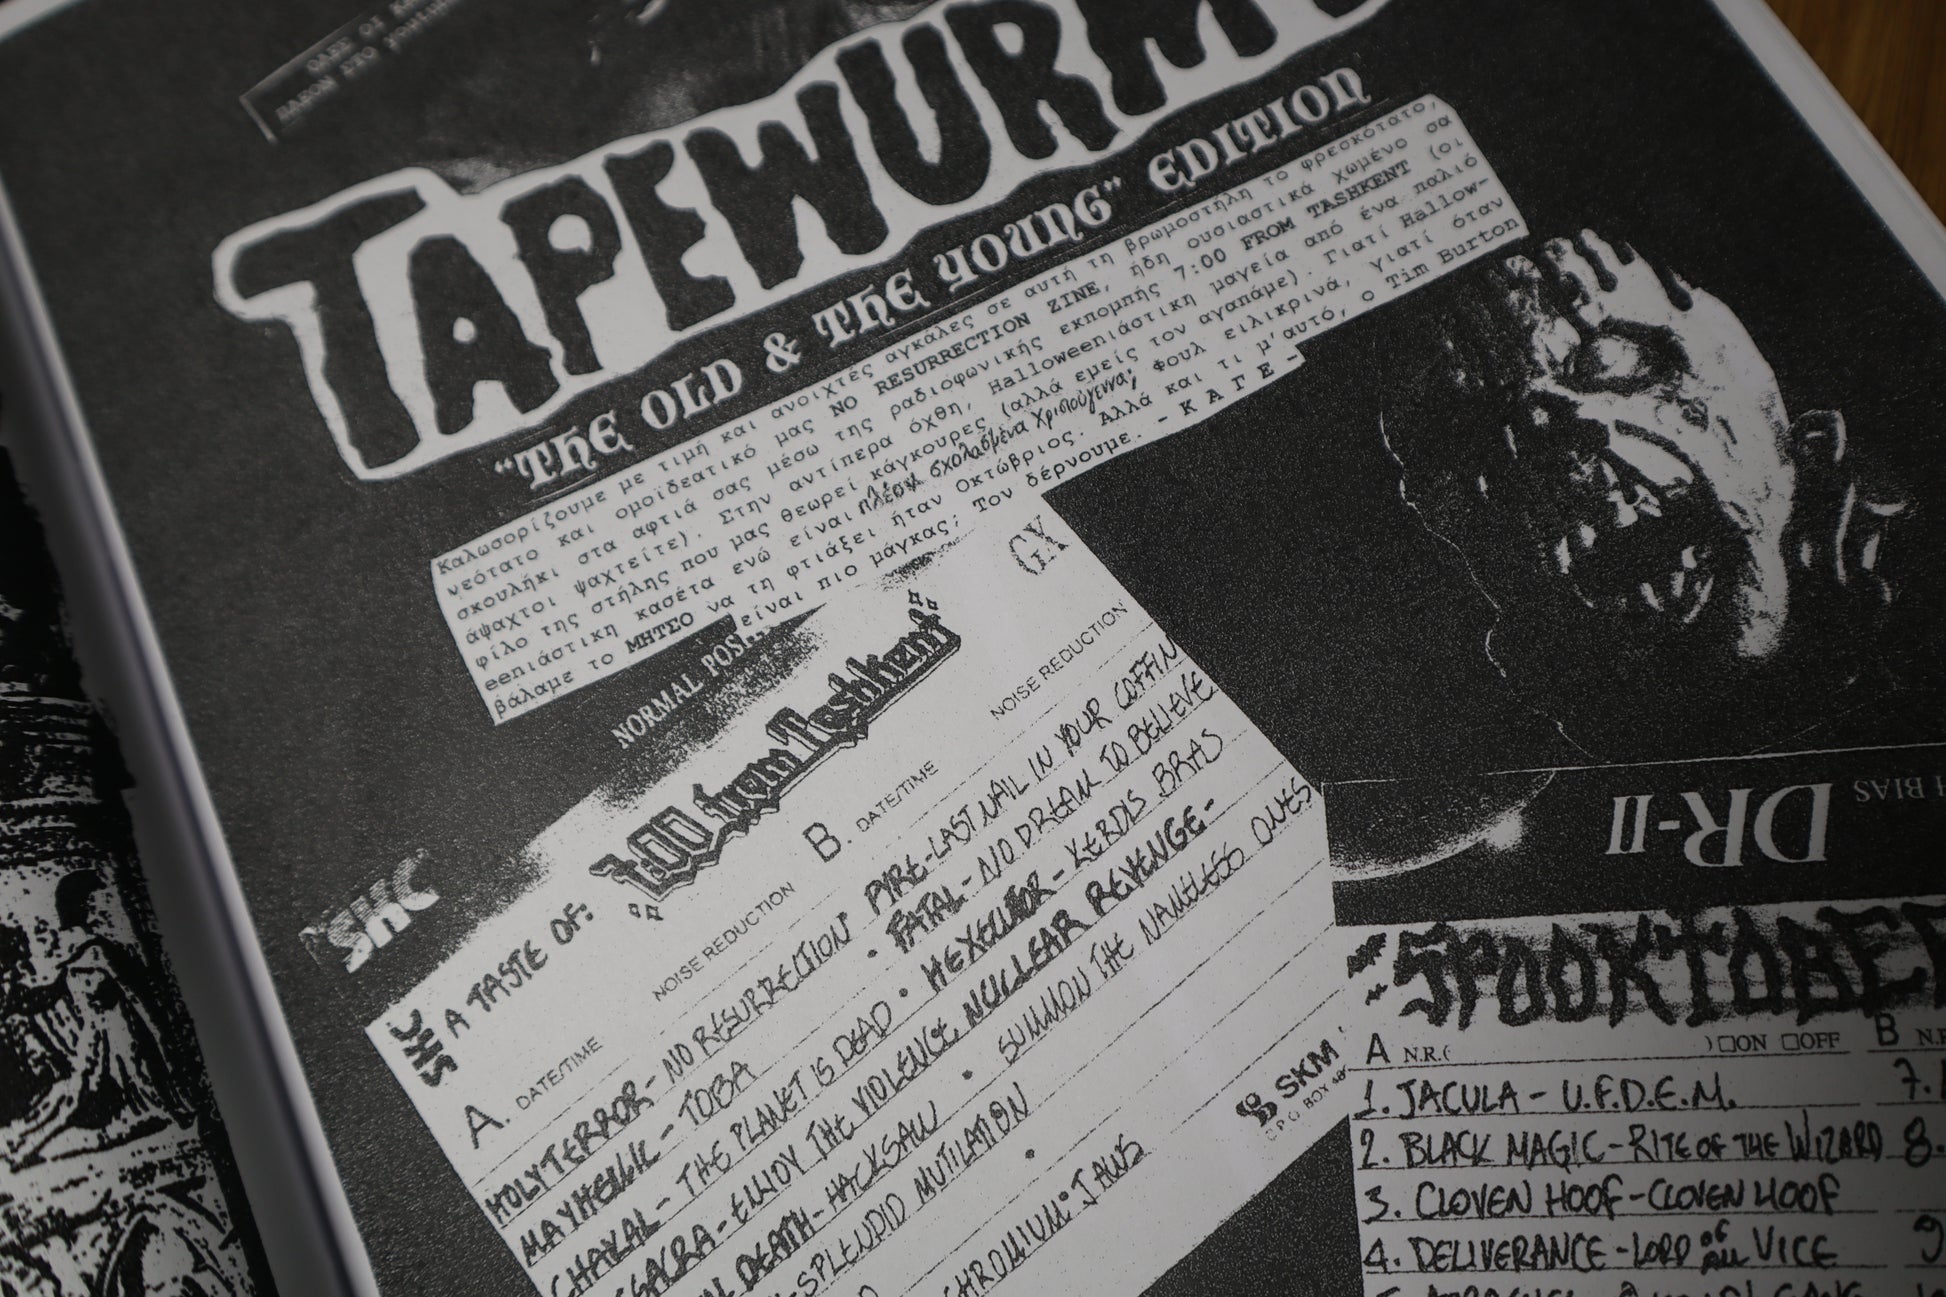 ΟΛΕΣ ΟΙ
ΠΑΡΟΝ ΣΤΟ youtub
TAPEWURM
"THE OLD & THE YOUNG" EDITION
Καλωσορίζουμε με τιμή και ανοιχτές αγκάλες σε αυτή τη βρωμοστήλη το φρεσκότατο,
νεότατο και ομοϊδεατικό μας NO RESURRECTION ZINE, ήδη ουσιαστικά χωμένο σα
σκουλήκι στα αφτιά σας μέσω της ραδιοφωνικής εκπομπής 7:00 FROM TASHKENT (οι
άψαχτοι ψαχτείτε). Στην αντίπερα όχθη, Halloweenιάστικη μαγεία από ένα παλιό
φίλο της στήλης που μας θεωρεί κάγκουρες (αλλά εμείς τον αγαπάμε). Γιατί Hallow-
eenιάστικη κασέτα ενώ είναι πλέον σχολασμένα Χριστούγεννα; φουλ ειλικρινά, γιατί όταν
βάλαμε το ΜΗΤΣΟ να τη φτιάξει ήταν Οκτώβριος. Αλλά και τι μ'αυτό, ο Tim Burton
είναι πιο μάγκας; Τον δέρνουμε. -Κ Α Γ Ε -
NORMAL POSI
GX
SKC
SKC A TASTE OF: 7:00 from Tashkent
A. DATE/TIME NOISE REDUCTION B. DATE/TIME NOISE REDUCTION
HOLY TERROR - NO RESURRECTION PYRE - LAST NAIL IN YOUR COFFIN
MAYHEMIC - TOBA • FATAL - NO DREAM TO BELIEVE
CHAVAL - THE PLANET IS DEAD • HEXECUTOR - KERDIS BRAS
SSACRA - ENJOY THE VIOLENCE NUCLEAR REVENGE -
DEATH - HACKSAW • SUMMON THE NAMELESS ONES
SPLENDID MUTILATION
CHROMIUM JAWS
SKM
P.O. BOX
DR-II
H BIAS
SPOOKTOBER
A N.R.( ) □ON □OFF B N.R
1. JACULA - U.F.D.E.M. 7.
2. BLACK MAGIC - RITE OF THE WIZARD 8.
3. CLOVEN HOOF - CLOVEN HOOF
4. DELIVERANCE - LORD OF ALL VICE 9